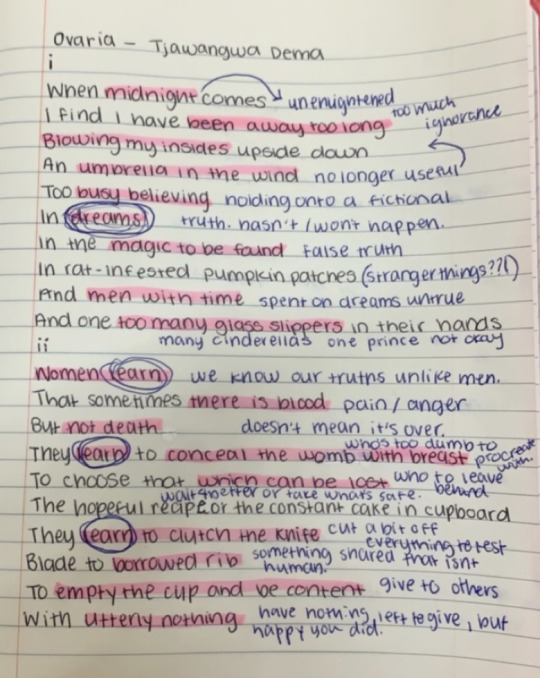 Ovaria - Tjawangwa Dema
i
When midnight comes unenlightened
too much
I find I have been away too long ignorance
Blowing my insides upside down
An umbrella in the wind no longer useful
Too busy believing holding onto a fictional
In dreams truth. hasn't/won't happen.
In the magic to be found false truth
In rat-infested pumpkin patches (stranger things??!)
And men with time spent on dreams untrue
And one too many glass slippers in their hands
ii many cinderellas one prince not okay
Women learn we know our truths unlike men.
That sometimes there is blood pain/anger
But not death doesn't mean it's over.
who's too dumb to
They learn to conceal the womb with breast procreate with.
To choose that which can be lost who to leave behind
wait 4 better or take what's safe.
The hopeful reaper or the constant cake in cupboard
They learn to clutch the knife cut a bit off everything to test
Blade to borrowed rib something shared that isn't human.
To empty the cup and be content give to others
With utterly nothing have nothing left to give, but
happy you did.